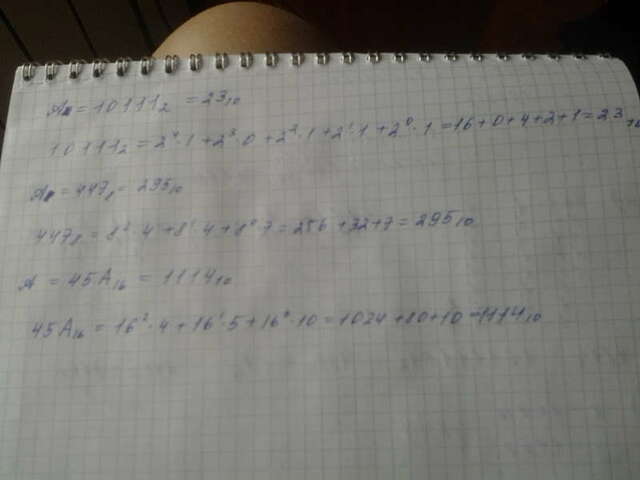 A = 10111₂ = 23₁₀
10111₂ = 2⁴·1 + 2³·0 + 2²·1 + 2¹·1 + 2⁰·1 = 16 + 0 + 4 + 2 + 1 = 23₁₀
A = 447₈ = 295₁₀
447₈ = 8²·4 + 8¹·4 + 8⁰·7 = 256 + 32 + 7 = 295₁₀
A = 45A₁₆ = 1114₁₀
45A₁₆ = 16²·4 + 16¹·5 + 16⁰·10 = 1024 + 80 + 10 = 1114₁₀